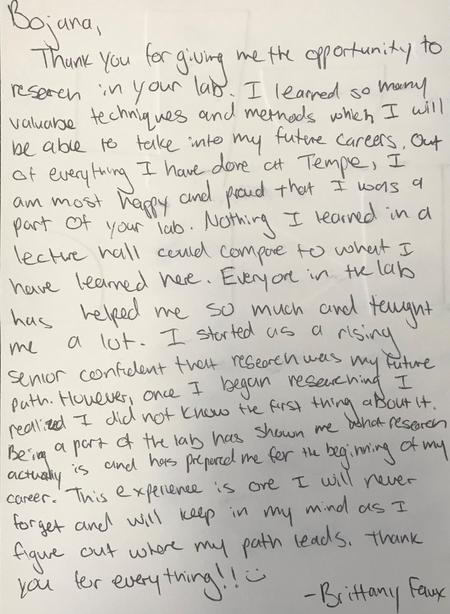 Bojana,
Thank you for giving me the opportunity to
research in your lab. I learned so many
valuable techniques and methods which I will
be able to take into my future careers. Out
of everything I have done at Temple, I
am most happy and proud that I was a
part of your lab. Nothing I learned in a
lecture hall could compare to what I
have learned here. Everyone in the lab
has helped me so much and taught
me a lot. I started as a rising
senior confident that research was my future
path. However, once I began researching I
realized I did not know the first thing about it.
Being a part of the lab has shown me what research
actually is and has prepared me for the beginning of my
career. This experience is one I will never
forget and will keep in my mind as I
figure out where my path leads. Thank
you for everything!! :)
-Brittany Faux